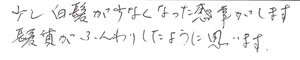 少し白髪が少なくなった感事がします
髪質がふんわりしたように思います.